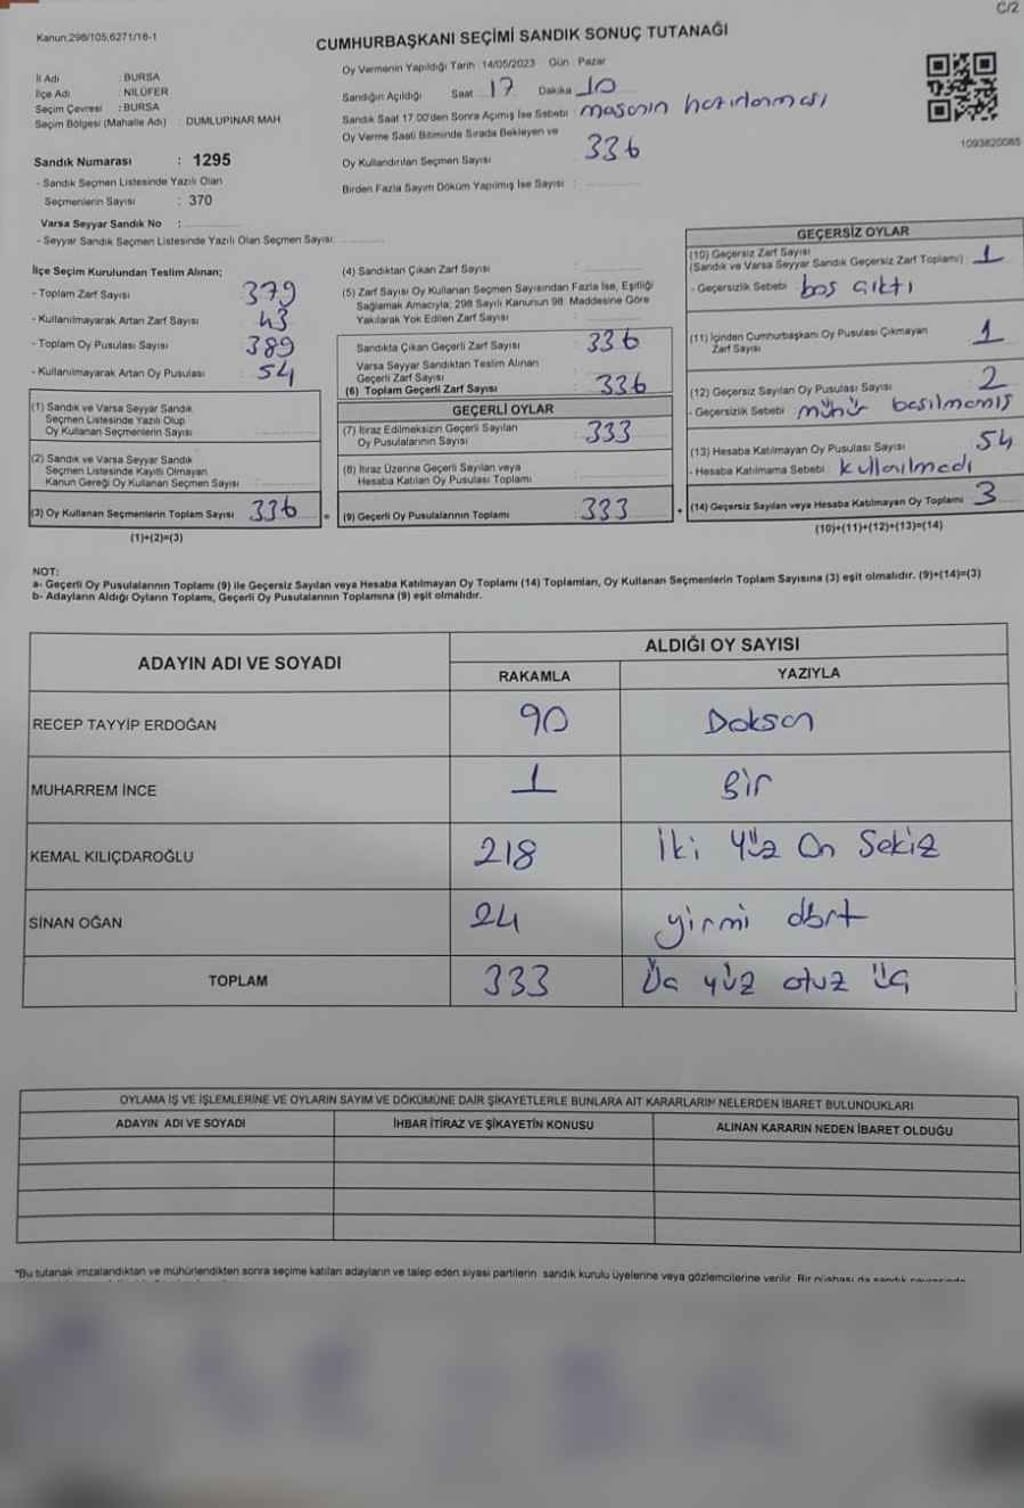 C/2
Kanun:298/105,6271/16-1
CUMHURBAŞKANI SEÇİMİ SANDIK SONUÇ TUTANAĞI
İl Adı : BURSA
İlçe Adı : NİLÜFER
Seçim Çevresi : BURSA
Seçim Bölgesi (Mahalle Adı) : DUMLUPINAR MAH
Sandık Numarası : 1295
- Sandık Seçmen Listesinde Yazılı Olan
Seçmenlerin Sayısı : 370
Varsa Seyyar Sandık No :
- Seyyar Sandık Seçmen Listesinde Yazılı Olan Seçmen Sayısı:
Oy Vermenin Yapıldığı Tarih :14/05/2023 Gün : Pazar
Sandığın Açıldığı Saat 17 Dakika 10
Sandık Saat 17.00'den Sonra Açılmış İse Sebebi : masanın hazırlanması
Oy Verme Saati Bitiminde Sırada Bekleyen ve
Oy Kullandırılan Seçmen Sayısı 336
Birden Fazla Sayım Döküm Yapılmış İse Sayısı :
1093820085
İlçe Seçim Kurulundan Teslim Alınan;
- Toplam Zarf Sayısı 379
- Kullanılmayarak Artan Zarf Sayısı 43
- Toplam Oy Pusulası Sayısı 389
- Kullanılmayarak Artan Oy Pusulası 54
(1) Sandık ve Varsa Seyyar Sandık
Seçmen Listesinde Yazılı Olup
Oy Kullanan Seçmenlerin Sayısı
(2) Sandık ve Varsa Seyyar Sandık
Seçmen Listesinde Kayıtlı Olmayan
Kanun Gereği Oy Kullanan Seçmen Sayısı :
(3) Oy Kullanan Seçmenlerin Toplam Sayısı 336
(1)+(2)=(3)
(4) Sandıktan Çıkan Zarf Sayısı
(5) Zarf Sayısı Oy Kullanan Seçmen Sayısından Fazla İse, Eşitliği
Sağlamak Amacıyla; 298 Sayılı Kanunun 98. Maddesine Göre
Yakılarak Yok Edilen Zarf Sayısı
Sandıkta Çıkan Geçerli Zarf Sayısı : 336
Varsa Seyyar Sandıktan Teslim Alınan
Geçerli Zarf Sayısı
(6) Toplam Geçerli Zarf Sayısı : 336
GEÇERLİ OYLAR
(7) İtiraz Edilmeksizin Geçerli Sayılan
Oy Pusulalarının Sayısı : 333
(8) İtiraz Üzerine Geçerli Sayılan veya
Hesaba Katılan Oy Pusulası Toplamı
= (9) Geçerli Oy Pusulalarının Toplamı : 333
GEÇERSİZ OYLAR
(10) Geçersiz Zarf Sayısı
(Sandık ve Varsa Seyyar Sandık Geçersiz Zarf Toplamı) : 1
- Geçersizlik Sebebi boş çıktı
(11) İçinden Cumhurbaşkanı Oy Pusulası Çıkmayan
Zarf Sayısı 1
(12) Geçersiz Sayılan Oy Pusulası Sayısı : 2
- Geçersizlik Sebebi mühür basılmamış
(13) Hesaba Katılmayan Oy Pusulası Sayısı : 54
- Hesaba Katılmama Sebebi kullanılmadı
+ (14) Geçersiz Sayılan veya Hesaba Katılmayan Oy Toplamı : 3
(10)+(11)+(12)+(13)=(14)
NOT:
a- Geçerli Oy Pusulalarının Toplamı (9) ile Geçersiz Sayılan veya Hesaba Katılmayan Oy Toplamı (14) Toplamları, Oy Kullanan Seçmenlerin Toplam Sayısına (3) eşit olmalıdır. (9)+(14)=(3)
b- Adayların Aldığı Oyların Toplamı, Geçerli Oy Pusulalarının Toplamına (9) eşit olmalıdır.
ADAYIN ADI VE SOYADI
ALDIĞI OY SAYISI
RAKAMLA YAZIYLA
RECEP TAYYİP ERDOĞAN 90 Doksan
MUHARREM İNCE 1 Bir
KEMAL KILIÇDAROĞLU 218 İki Yüz On Sekiz
SİNAN OĞAN 24 yirmi dört
TOPLAM 333 Üç yüz otuz üç
OYLAMA İŞ VE İŞLEMLERİNE VE OYLARIN SAYIM VE DÖKÜMÜNE DAİR ŞİKAYETLERLE BUNLARA AİT KARARLARIN NELERDEN İBARET BULUNDUKLARI
ADAYIN ADI VE SOYADI İHBAR İTİRAZ VE ŞİKAYETİN KONUSU ALINAN KARARIN NEDEN İBARET OLDUĞU
*Bu tutanak imzalandıktan ve mühürlendikten sonra seçime katılan adayların ve talep eden siyasi partilerin sandık kurulu üyelerine veya gözlemcilerine verilir. Bir nüshası da sandık